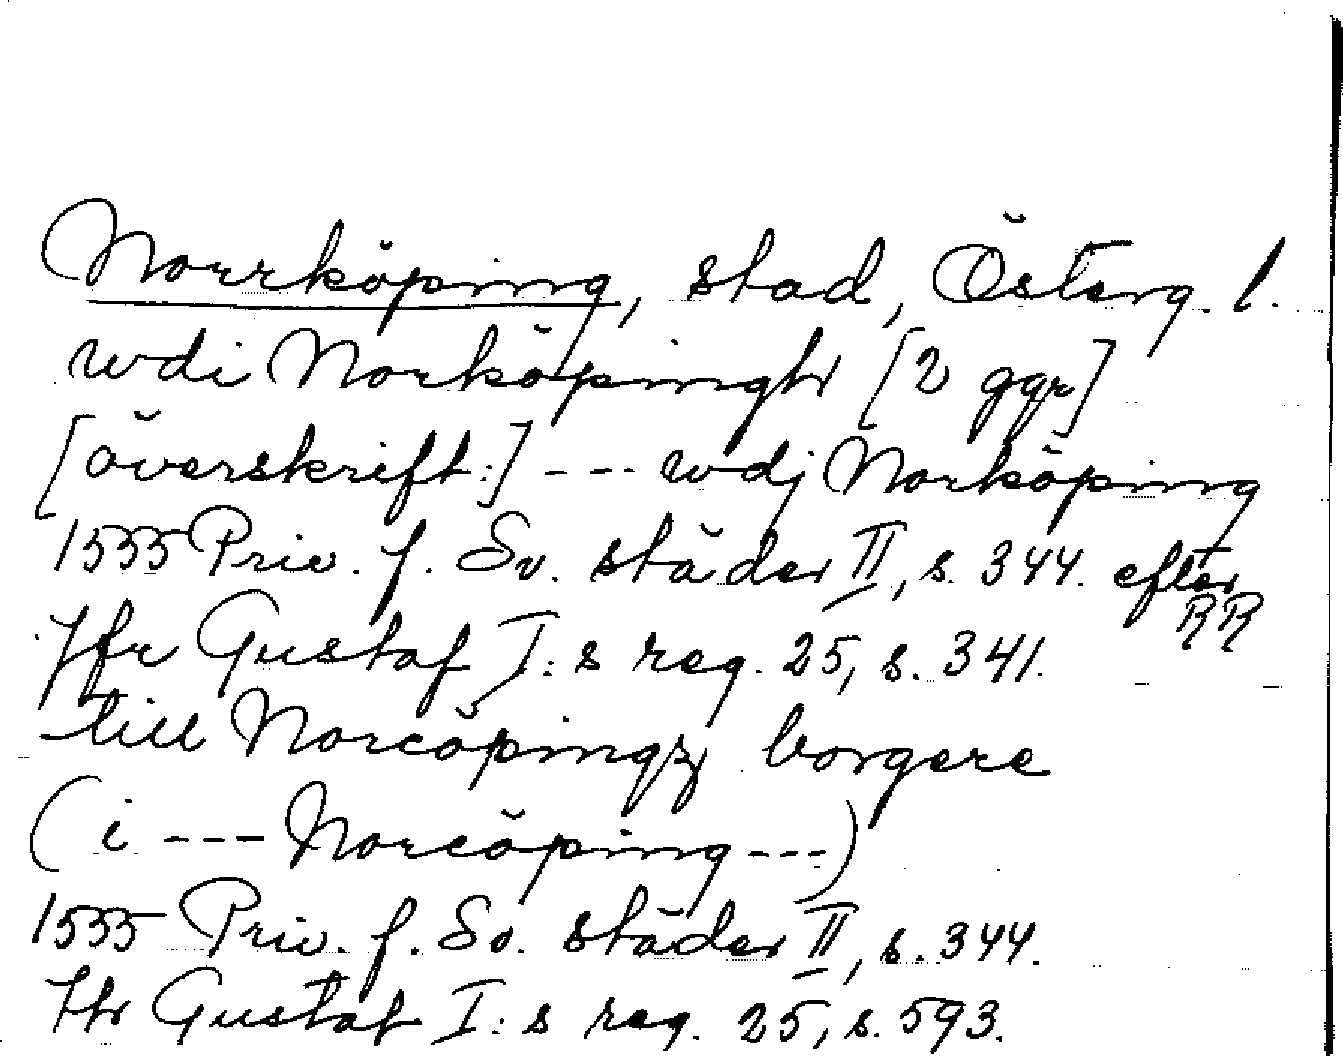 Norrköping, stad, Österg. l.
wdi Norköpingh [2 ggr]
[överskrift:] --- wdj Norköping
1555 Priv. f. Sv. städer II, s. 344. efter
RR
Jfr Gustaf I:s reg. 25, s. 341.
till Norcöpingz borgere
(i --- Norcöping ---)
1555 Priv. f. Sv. städer II, s. 344.
Jfr Gustaf I:s reg. 25, s. 593.